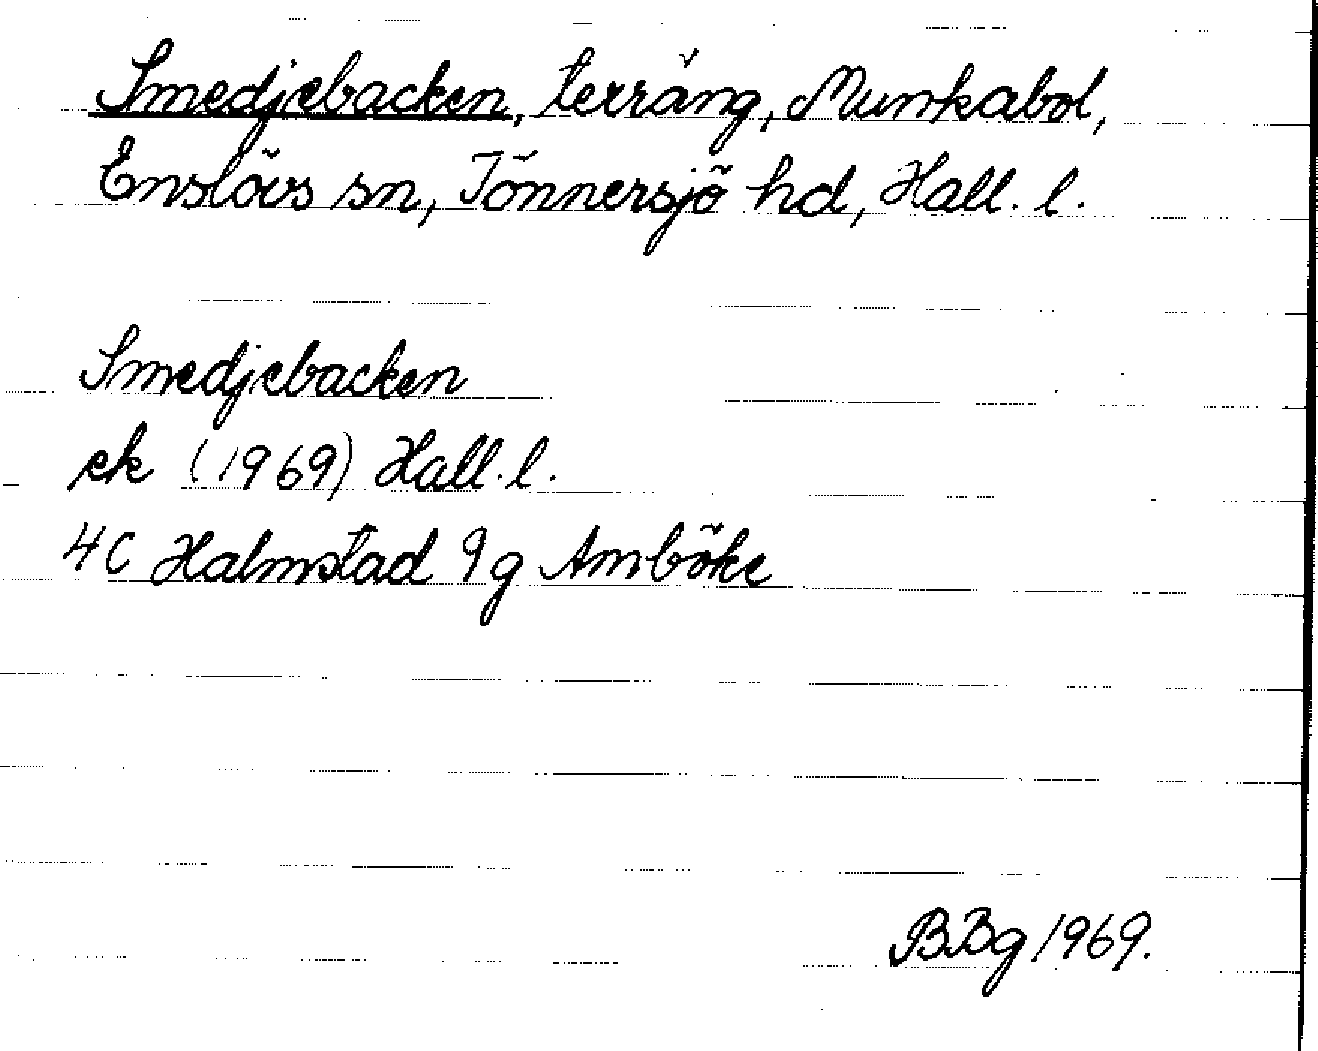 Smedjebacken, terräng, Munkabol,
Enslövs sn, Tönnersjö hd, Hall. l.
Smedjebacken
ek (1969) Hall. l.
4C Halmstad 9g Amböke
BBg 1969.